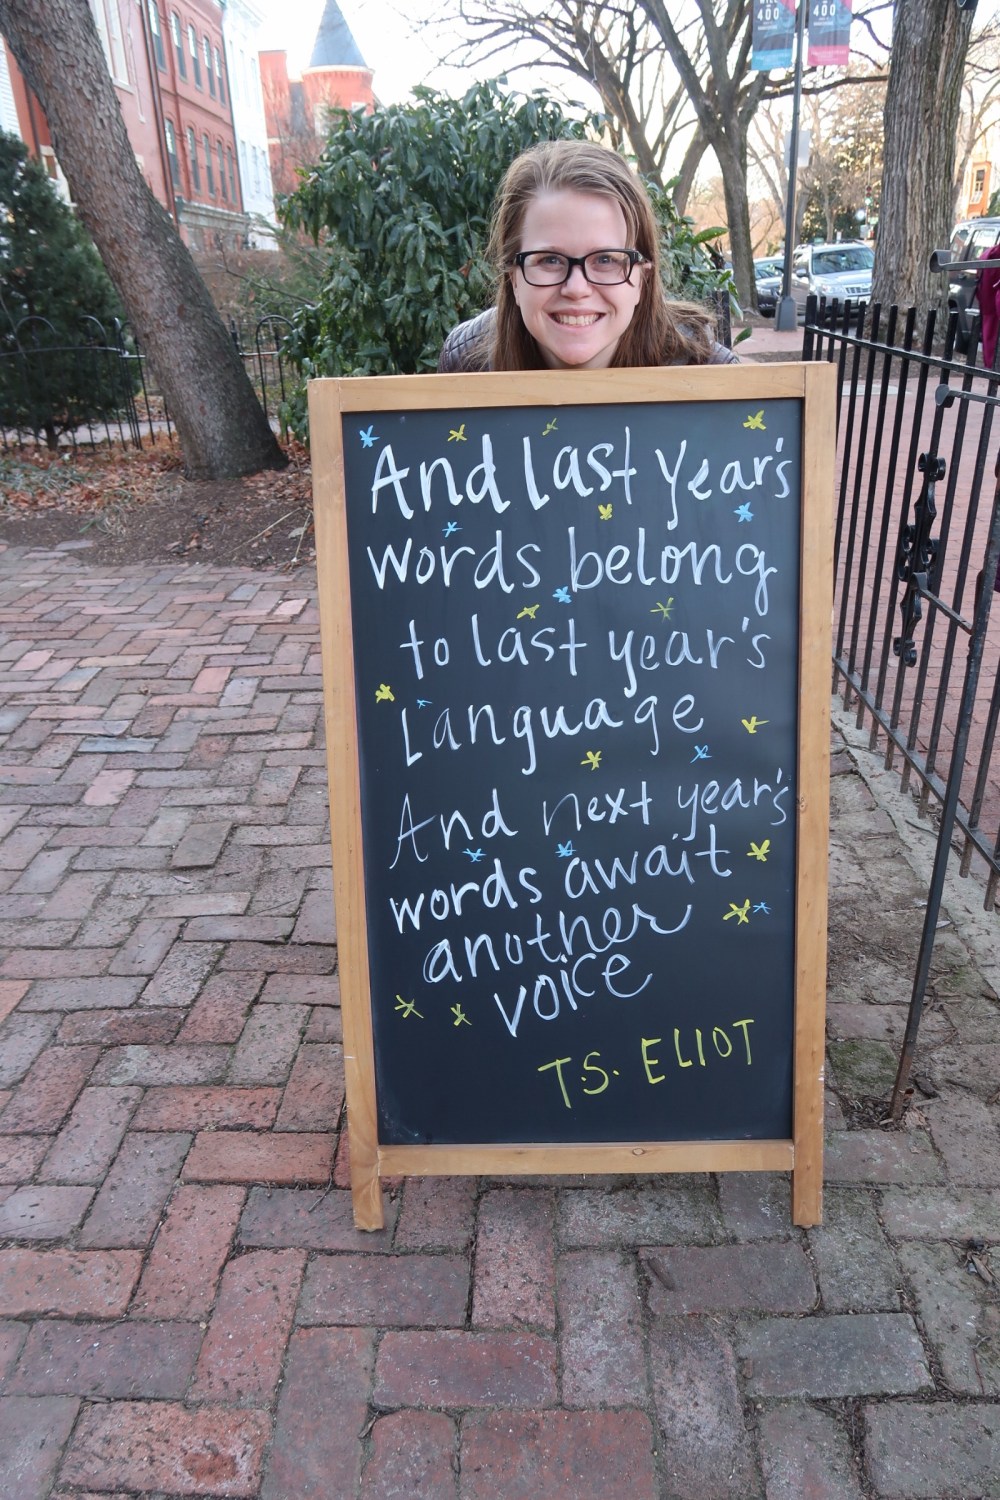 And last year's
words belong
to last year's
Language
And next year's
words await
another
voice
T.S. ELIOT
400
400